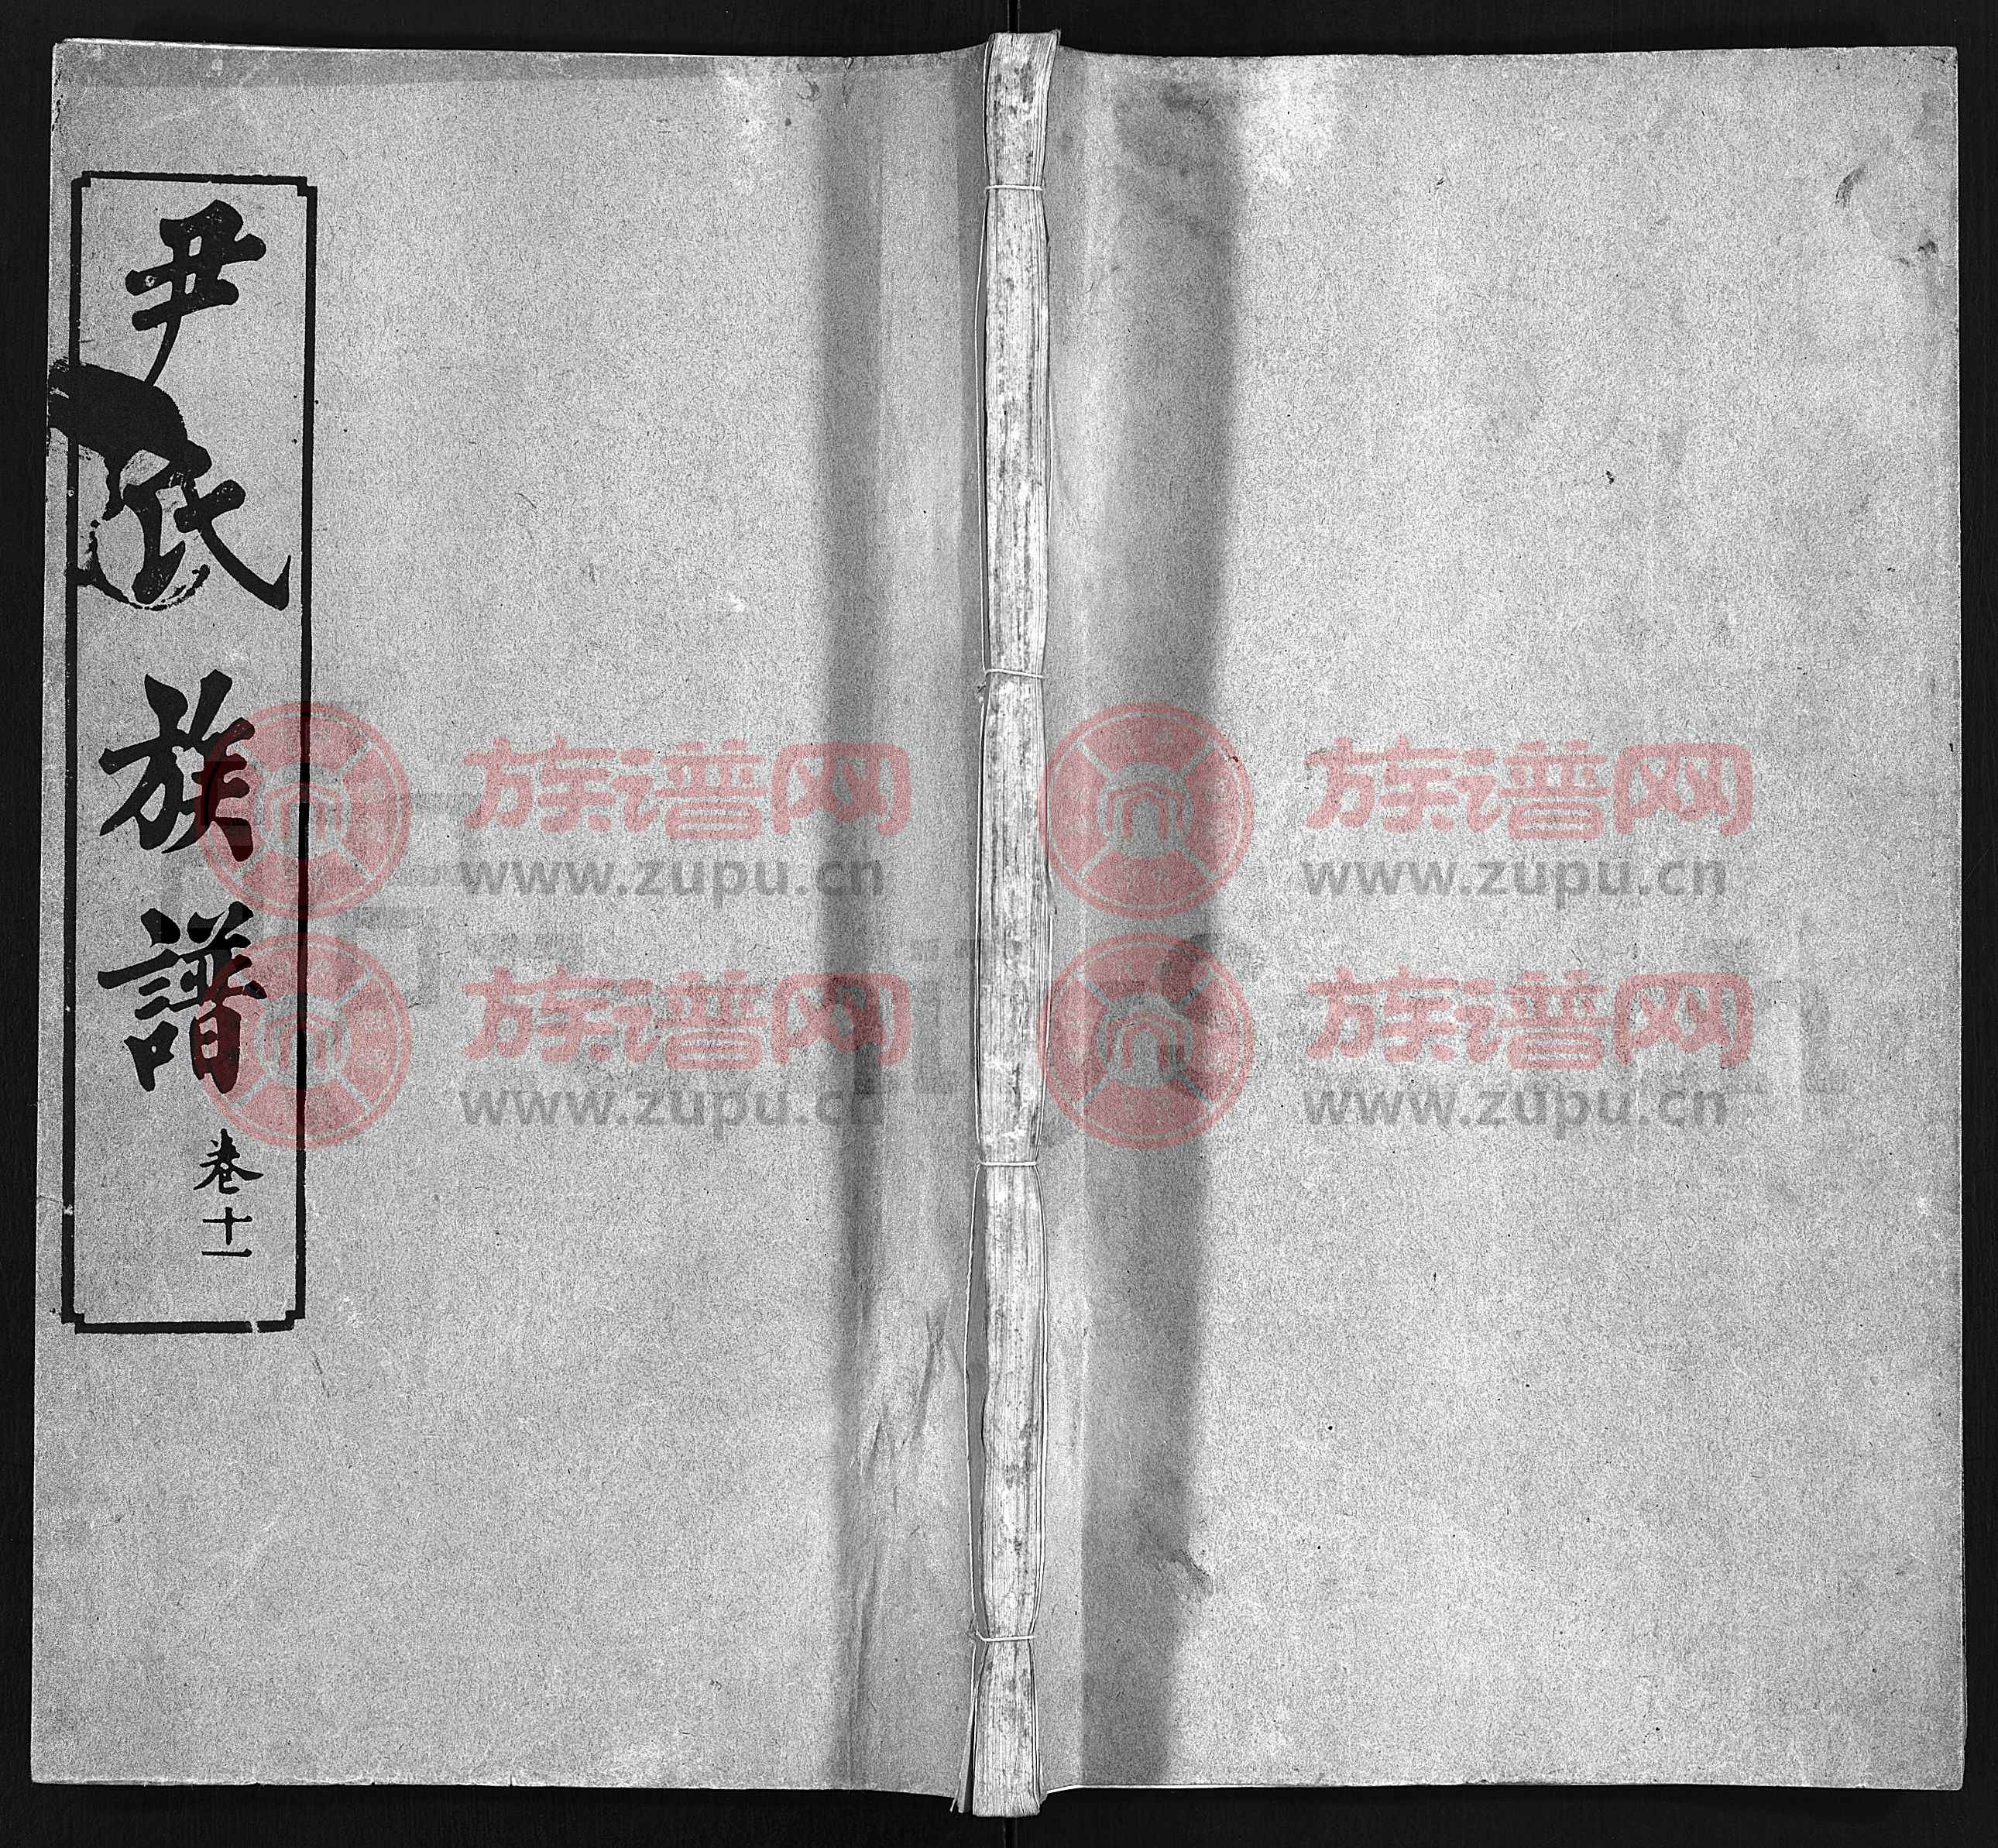 尹氏族譜
卷十一
族谱网 族谱网
www.zupu.cn www.zupu.cn
族谱网 族谱网
www.zupu.cn www.zupu.cn